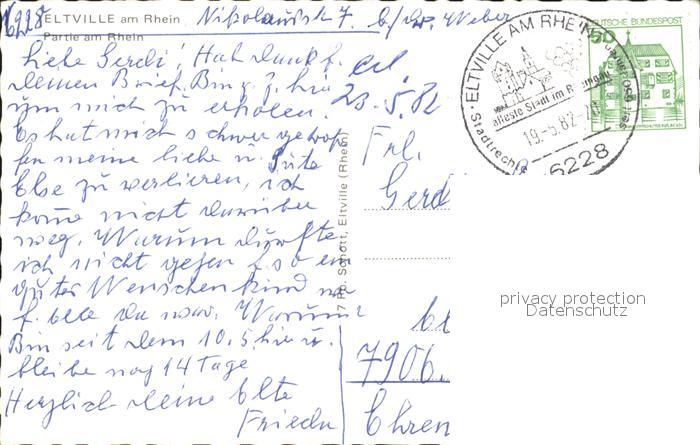 6228 ELTVILLE am Rhein Nikolausstr 7. b/ Dr. Weber
Partie am Rhein
Liebe Gerdi! Hab Dank f.
Deinen Brief. Bin z. hier
um mich zu erholen.
Es hat mich schwer getrof
fen meine liebe u. gute
Else zu verlieren, ich
komme nicht darüber
weg. Warum durfte
ich nicht gehen so ein
guter Menschenkind
f. alle da war. Warum?
Bin seit dem 10.5. hier u.
bleibe noch 14 Tage
Herzlich Deine alte
Friedn
erl.
23.5.82
Frl.
Gerd
bei
7906.
Ehren
Rud. Schott, Eltville (Rhein)
ELTVILLE AM RHEIN
älteste Stadt im Rheingau
Stadtrechte
19.-5.82
6228
DEUTSCHE BUNDESPOST
50
privacy protection
Datenschutz